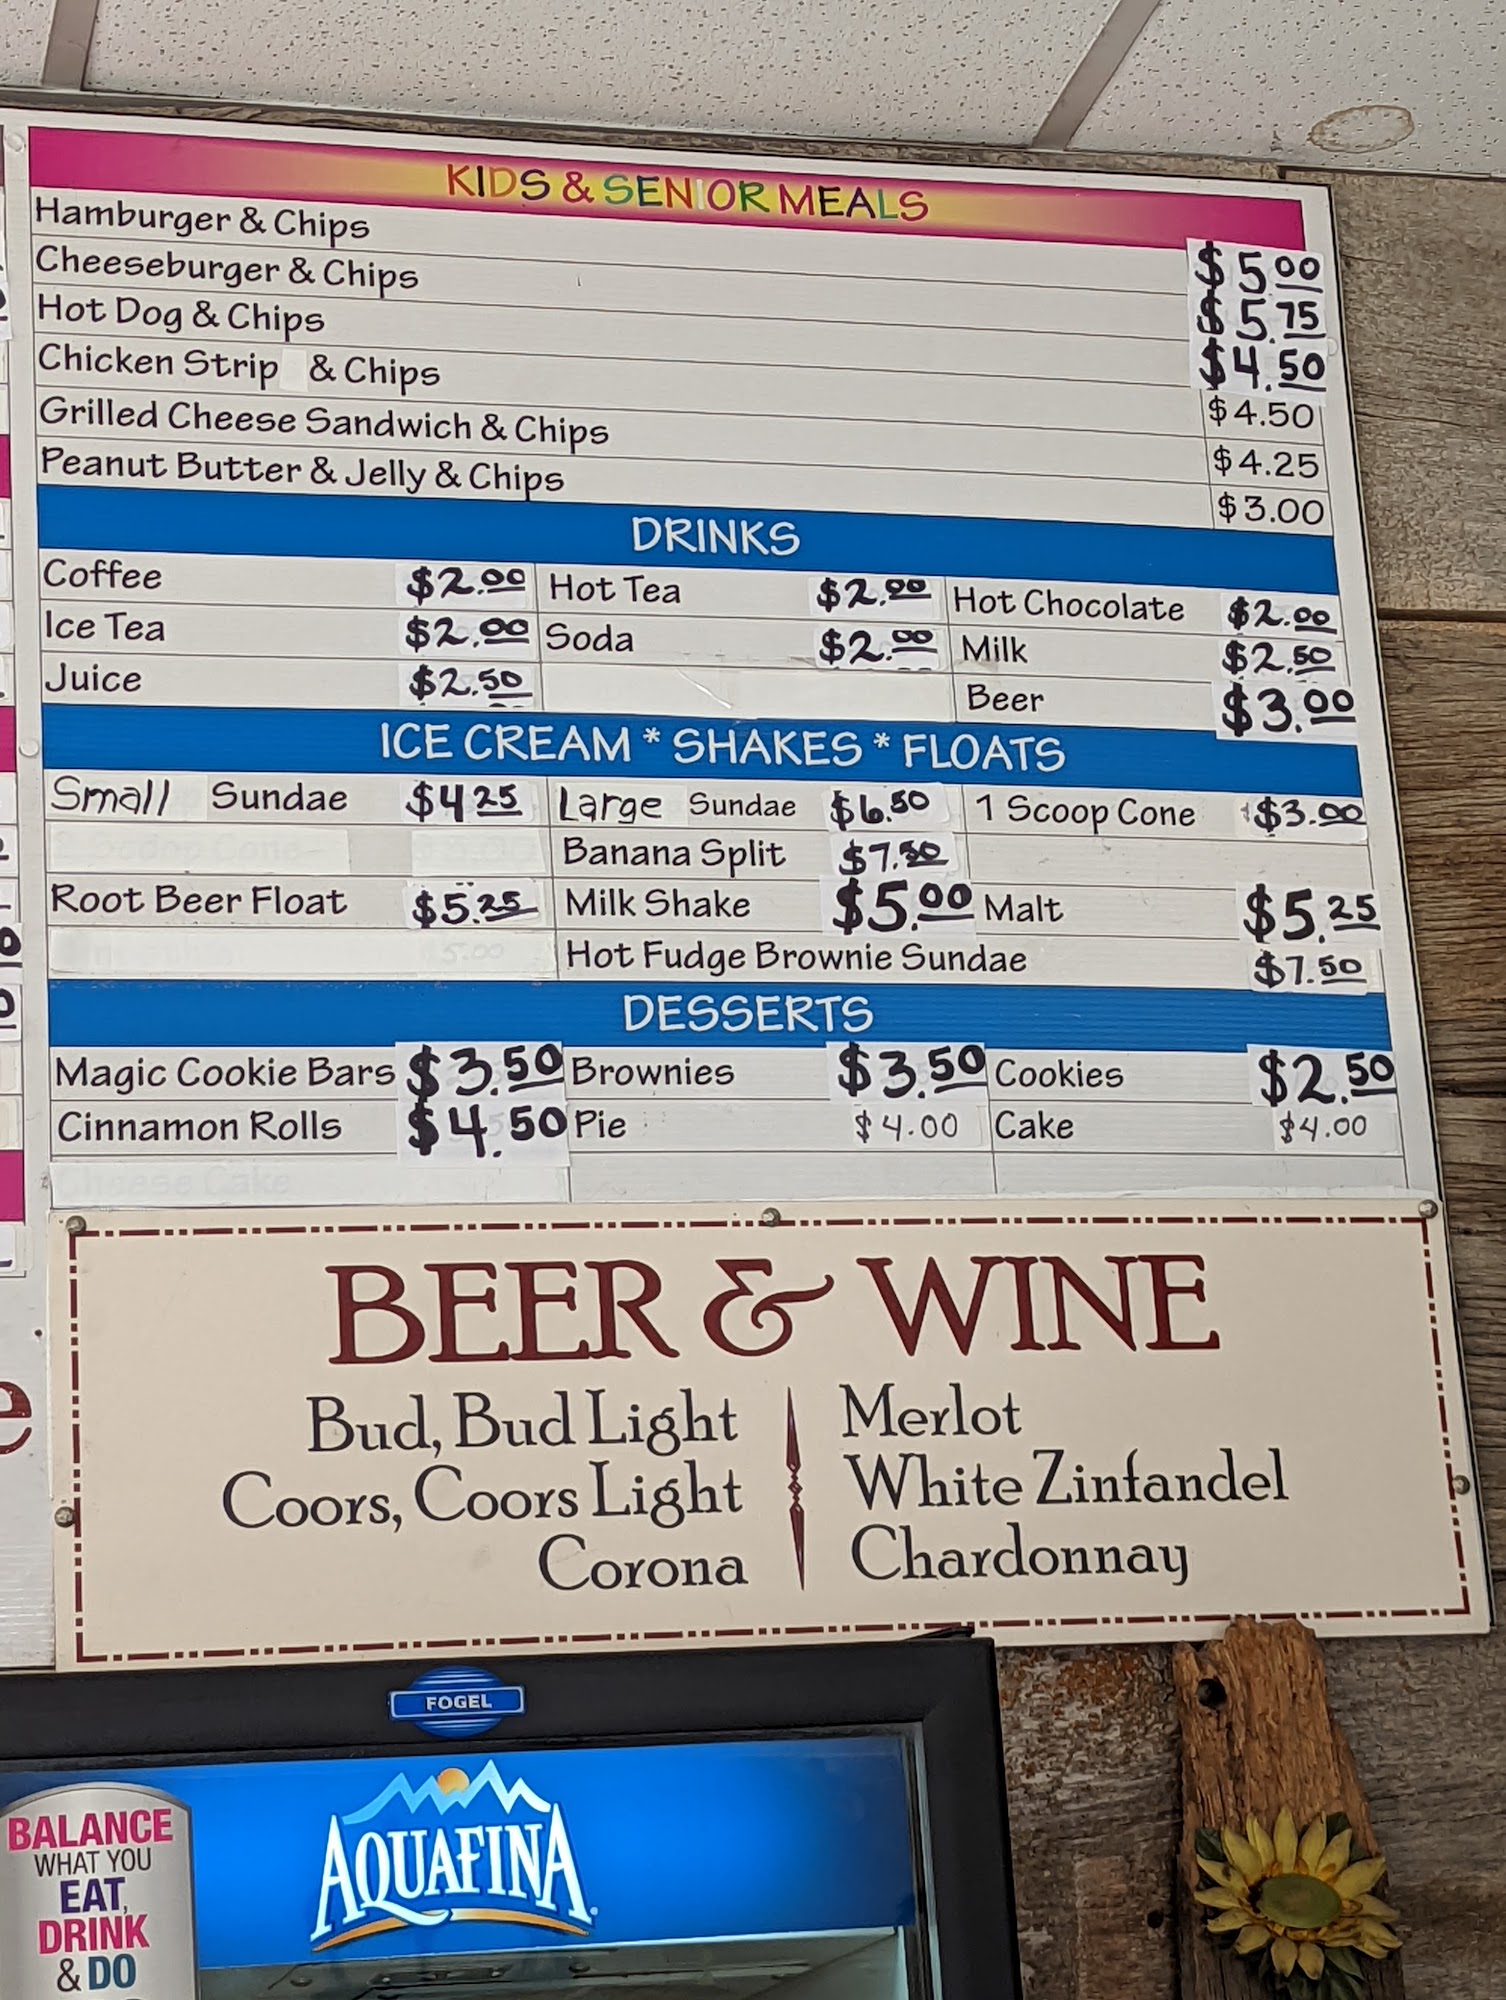 KIDS & SENIOR MEALS
Hamburger & Chips $5.00
Cheeseburger & Chips $5.75
Hot Dog & Chips $4.50
Chicken Strip & Chips $4.50
Grilled Cheese Sandwich & Chips $4.25
Peanut Butter & Jelly & Chips $3.00
DRINKS
Coffee $2.00 Hot Tea $2.00 Hot Chocolate $2.00
Ice Tea $2.00 Soda $2.00 Milk $2.50
Juice $2.50 Beer $3.00
ICE CREAM * SHAKES * FLOATS
Small Sundae $4.25 Large Sundae $6.50 1 Scoop Cone $3.00
Banana Split $7.50
Root Beer Float $5.25 Milk Shake $5.00 Malt $5.25
Hot Fudge Brownie Sundae $7.50
DESSERTS
Magic Cookie Bars $3.50 Brownies $3.50 Cookies $2.50
Cinnamon Rolls $4.50 Pie $4.00 Cake $4.00
Cheese Cake
BEER & WINE
Bud, Bud Light Merlot
Coors, Coors Light White Zinfandel
Corona Chardonnay
FOGEL
AQUAFINA
BALANCE
WHAT YOU
EAT,
DRINK
& DO